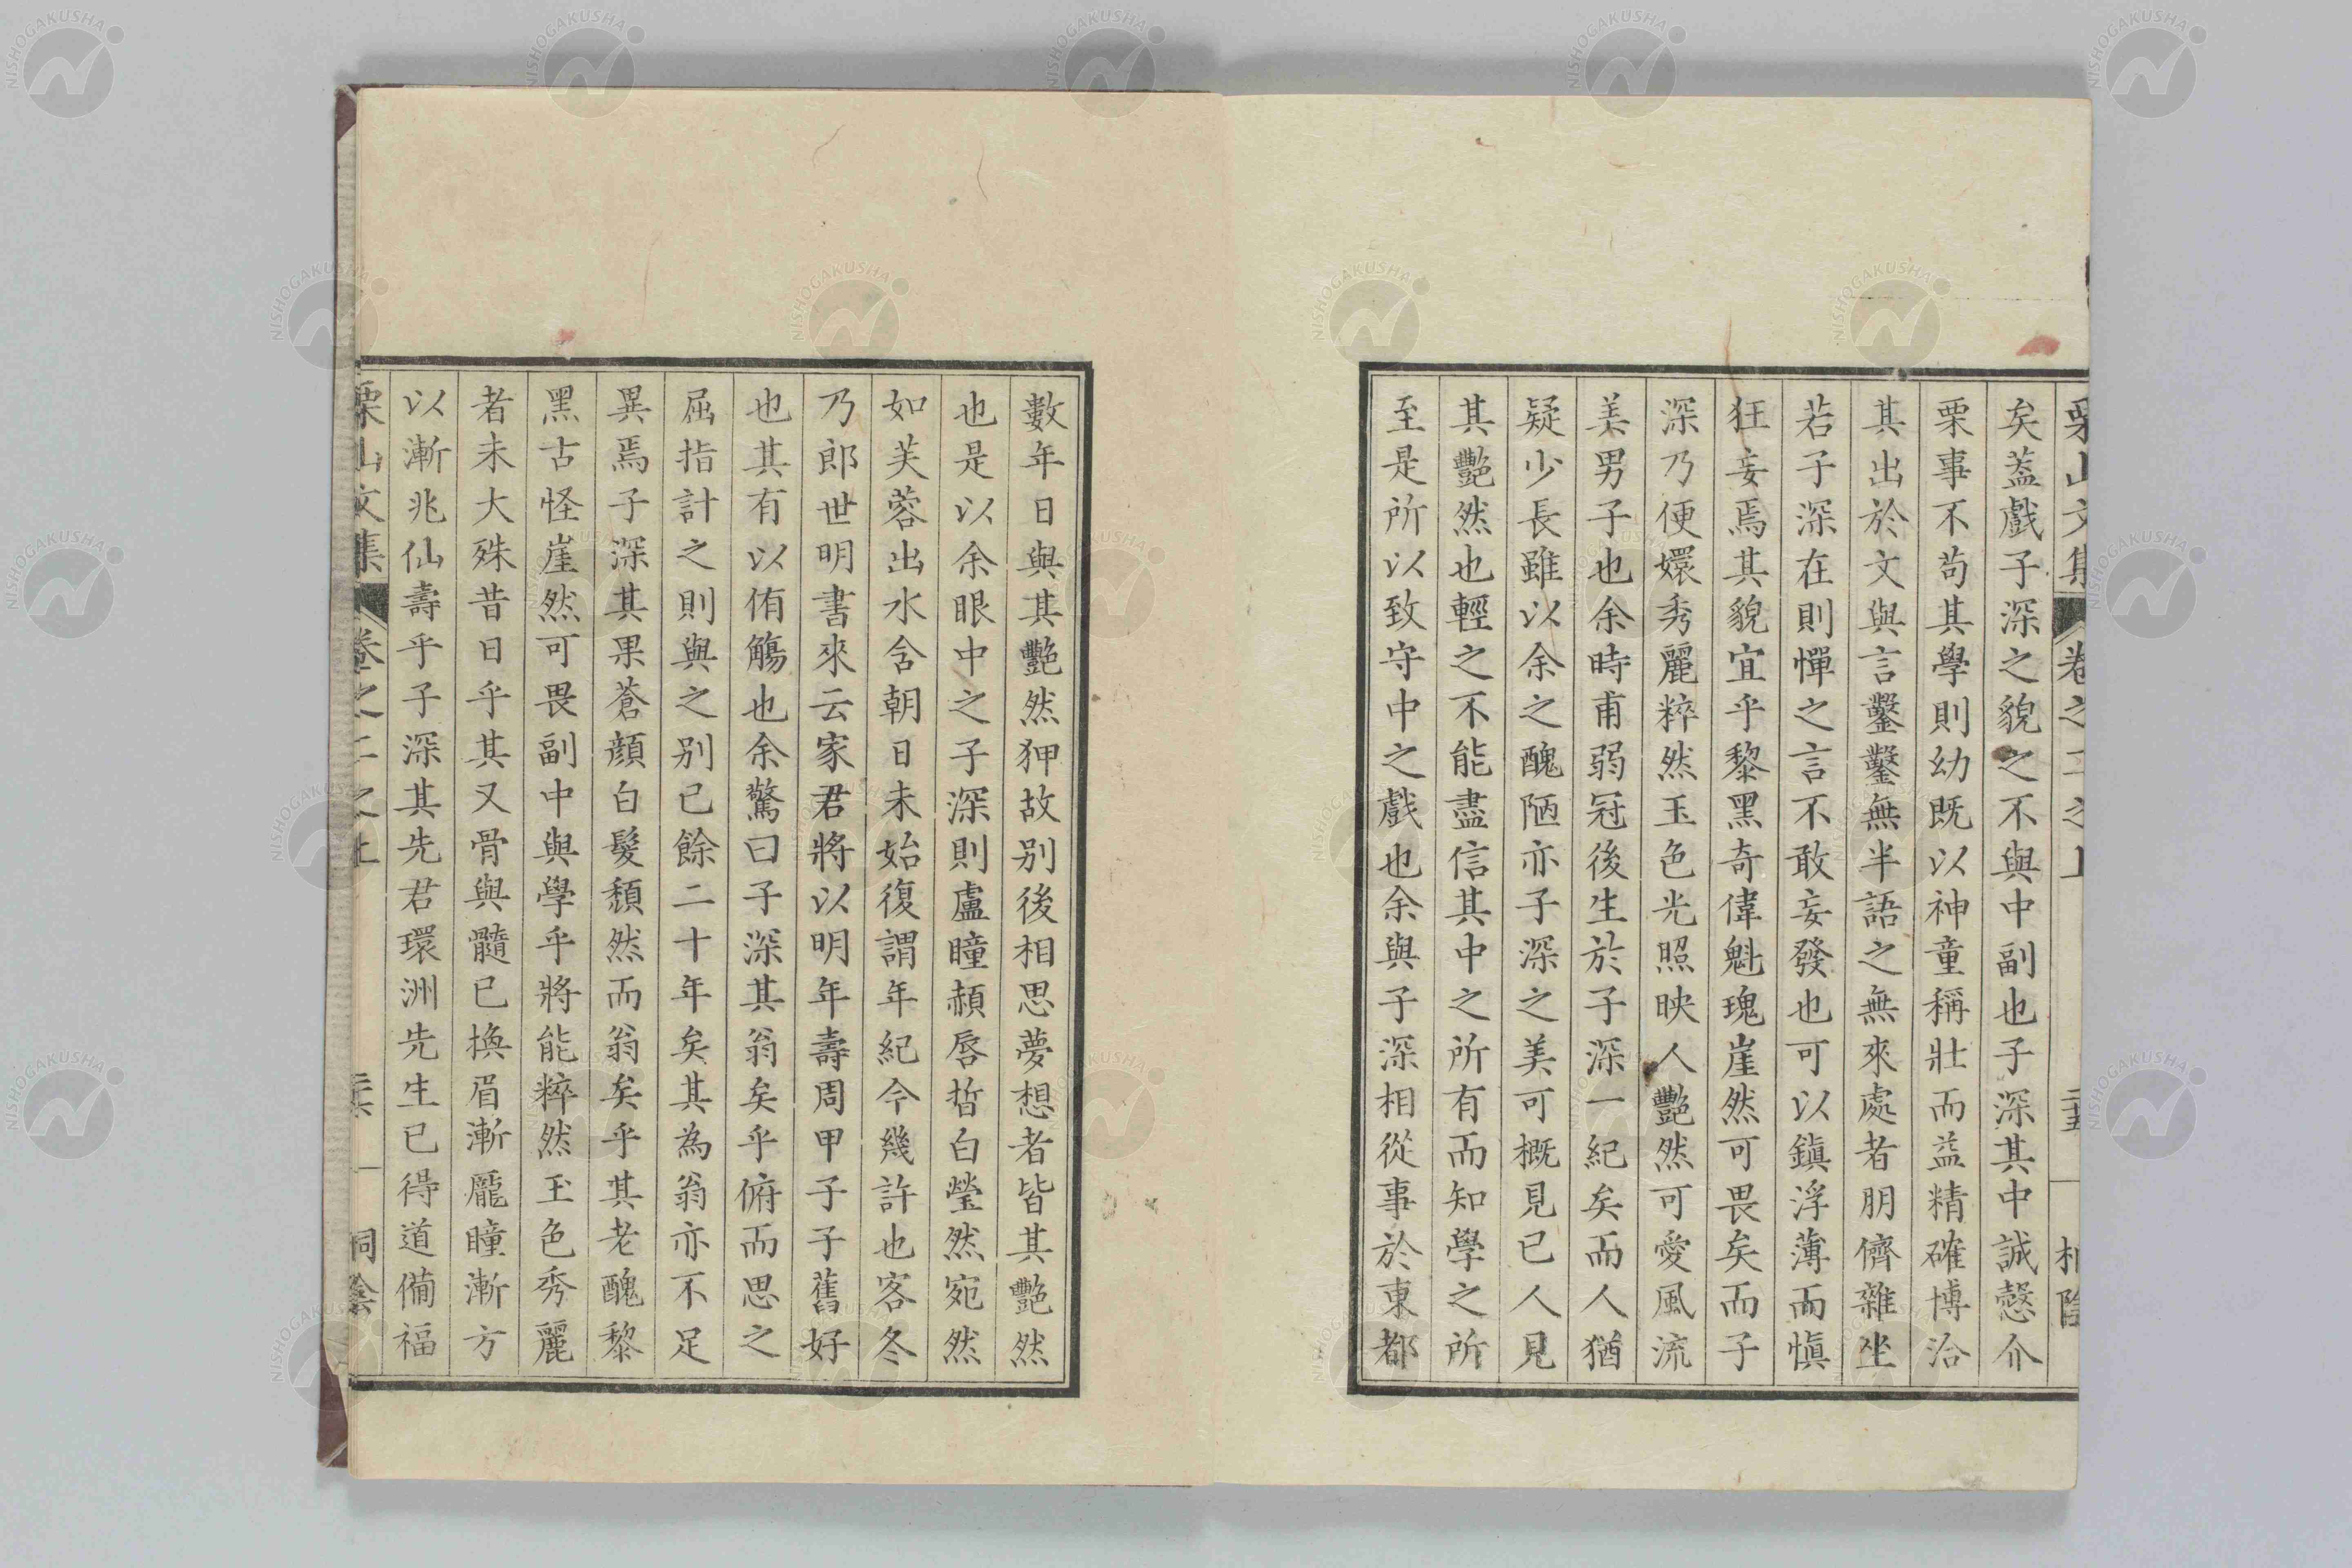 栗山文集 卷之二之上 二十五 桐陰
矣蓋戲子深之貌之不與中副也子深其中誠愨介
栗事不苟其學則幼既以神童稱壯而益精確博洽
其出於文與言鑿鑿無半語之無來處者朋儕雜坐
若子深在則憚之言不敢妄發也可以鎮浮薄而愼
狂妄焉其貌宜乎黎黑奇偉魁瑰崖然可畏矣而子
深乃便嬛秀麗粹然玉色光照映人艷然可愛風流
美男子也余時甫弱冠後生於子深一紀矣而人猶
疑少長雖以余之醜陋亦子深之美可概見已人見
其艷然也輕之不能盡信其中之所有而知學之所
至是所以致守中之戲也余與子深相從事於東都
數年日與其艷然狎故別後相思夢想者皆其艷然
也是以余眼中之子深則盧瞳頳唇晳白瑩然宛然
如芙蓉出水含朝日未始復謂年紀今幾許也客冬
乃郎世明書來云家君將以明年壽周甲子子舊好
也其有以侑觴也余驚曰子深其翁矣乎俯而思之
屈指計之則與之別已餘二十年矣其為翁亦不足
異焉子深其果蒼顏白髮頹然而翁矣乎其老醜黎
黑古怪崖然可畏副中與學乎將能粹然玉色秀麗
者未大殊昔日乎其又骨與髓已換眉漸龐瞳漸方
以漸兆仙壽乎子深其先君環洲先生已得道備福
栗山文集 卷之二之上 二十六 桐陰